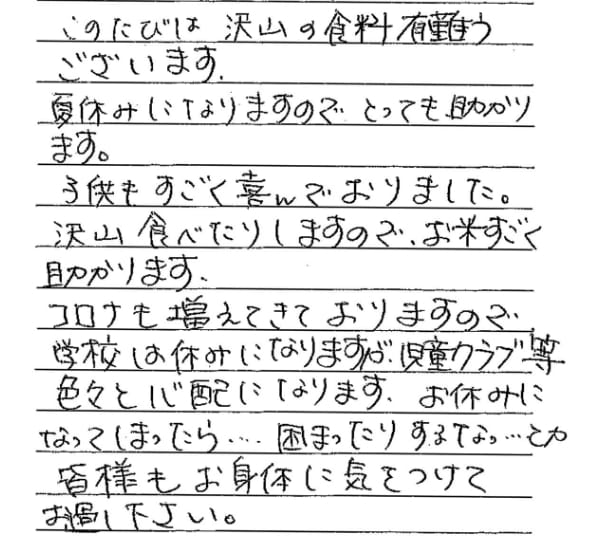 このたびは 沢山の食料有難う
ございます.
夏休みになりますので とっても助かり
ます。
子供もすごく喜んでおりました。
沢山食べたりしますので、お米すごく
助かります.
コロナも増えてきておりますので
学校は休みになりますが、児童クラブ等
色々と心配になります. お休みに
なってしまったら…. 困まったりするなぁ…とか
皆様もお身体に気をつけて
お過し下さい。